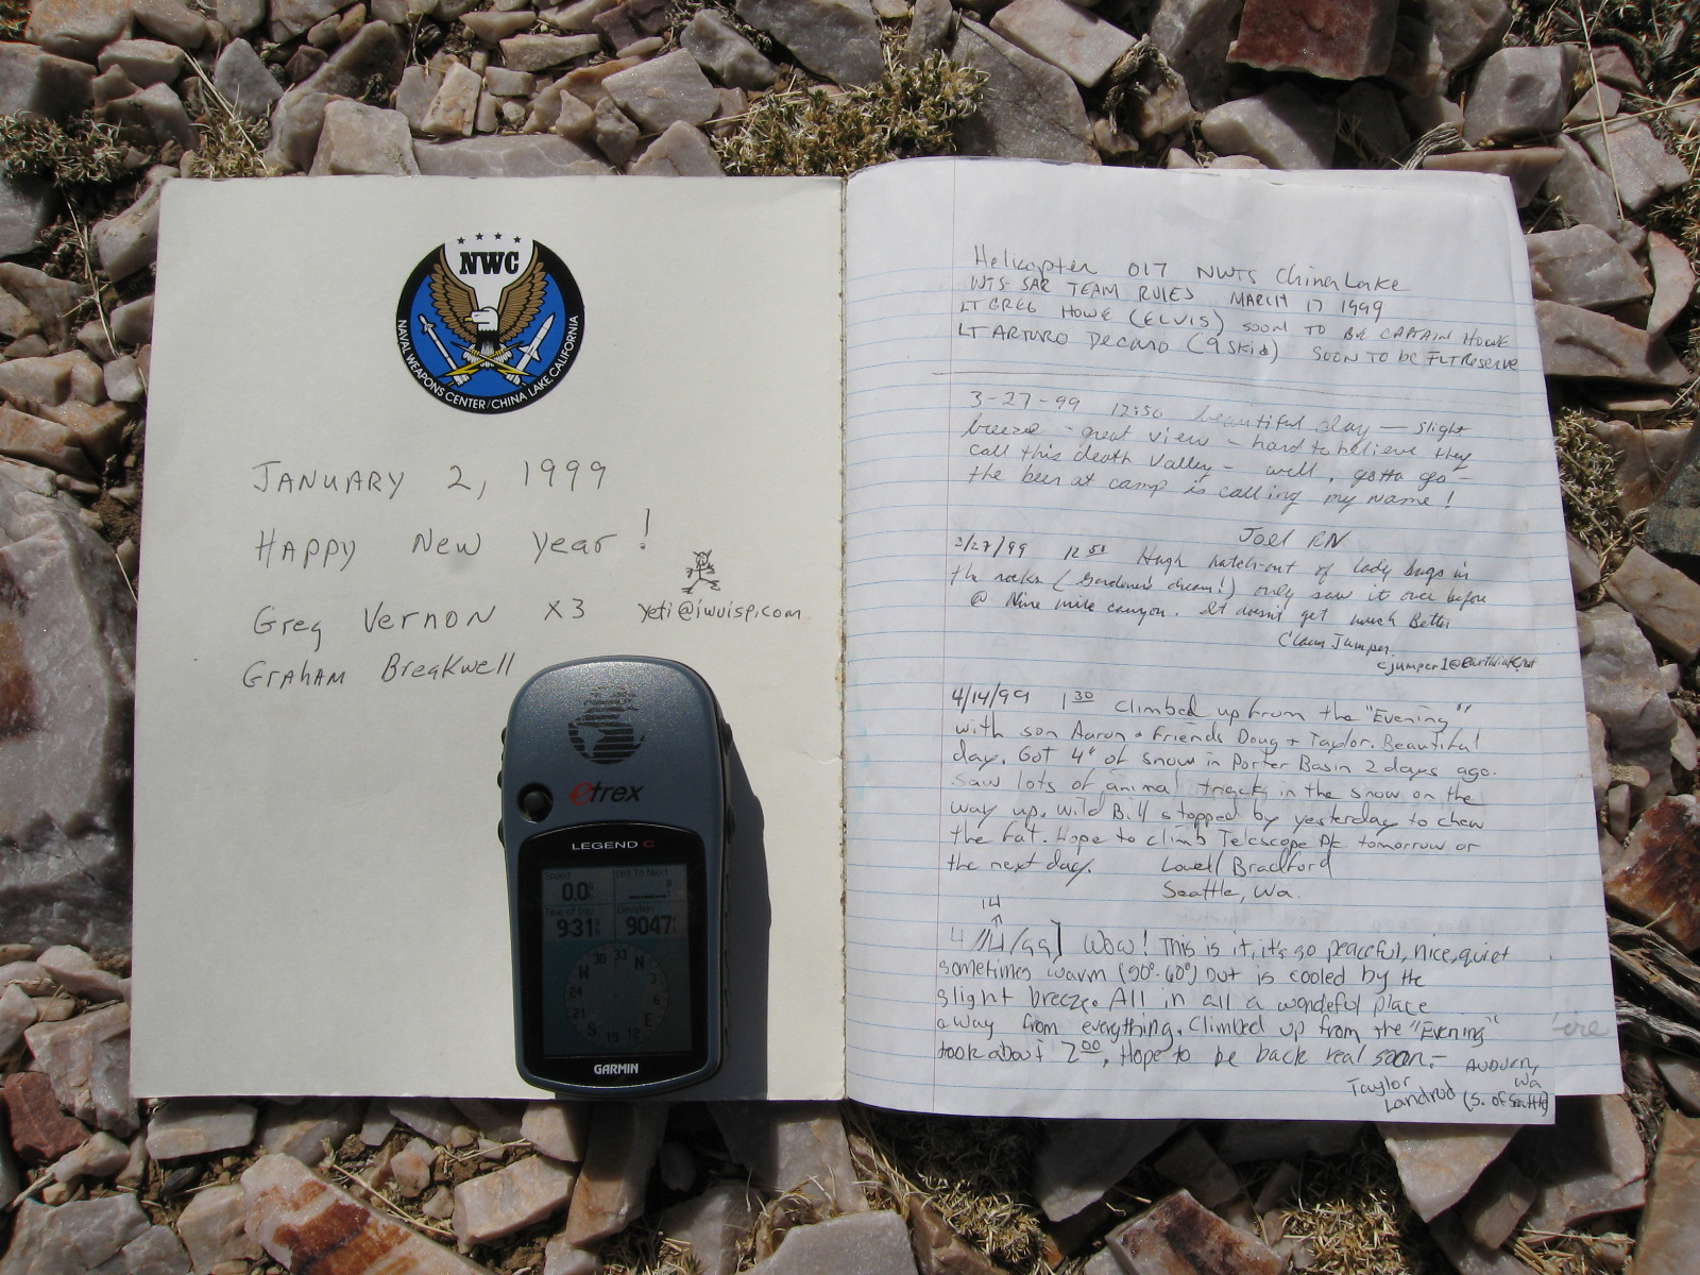 NWC
NAVAL WEAPONS CENTER/CHINA LAKE CALIFORNIA
JANUARY 2, 1999
HAPPY New Year!
Greg Vernon x3 yeti@iwvisp.com
GRAHAM Breakwell
etrex
LEGEND C
Speed
0.0
Time of Day Elevation
9:31 9047
33 N 3 6 E 12 15 S 21 24 W 30
GARMIN
Helicopter 017 NWTS China Lake
WTS SAR TEAM RULES MARCH 17 1999
LT GREG HOWE (ELVIS) SOON TO BE CAPTAIN HOWE
LT ARTURO DeCARO (9 skid) SOON TO BE FLT Reserve
3-27-99 12:50 beautiful day — slight
breeze - great view - hard to believe they
call this death Valley - well, gotta go -
the beer at camp is calling my name!
Joel RN
3/27/99 12 51 Hugh hatch-out of lady bugs in
the rocks (Gardener's dream!) only saw it once before
@ Nine mile canyon. It doesn't get much Better
Claim Jumper
cjumper1@earthlink.net
4/14/99 1 30 Climbed up from the "Evening"
with son Aaron + Friends Doug + Taylor. Beautiful
day. Got 4" of snow in Porter Basin 2 days ago.
Saw lots of animal tracks in the snow on the
way up. Wild Bill stopped by yesterday to chew
the fat. Hope to climb Telescope Pk tomorrow or
the next day. Lowell Bradford
Seattle, Wa.
14
4/14/99] Wow! This is it, it's so peaceful, nice, quiet
sometimes warm (50°-60°) but is cooled by the
slight breeze. All in all a wondeful place
away from everything. Climbed up from the "Evening"
took about 2 00. Hope to be back real soon. - AUBURN,
Taylor Wa
Landrud (S. of Seattle)